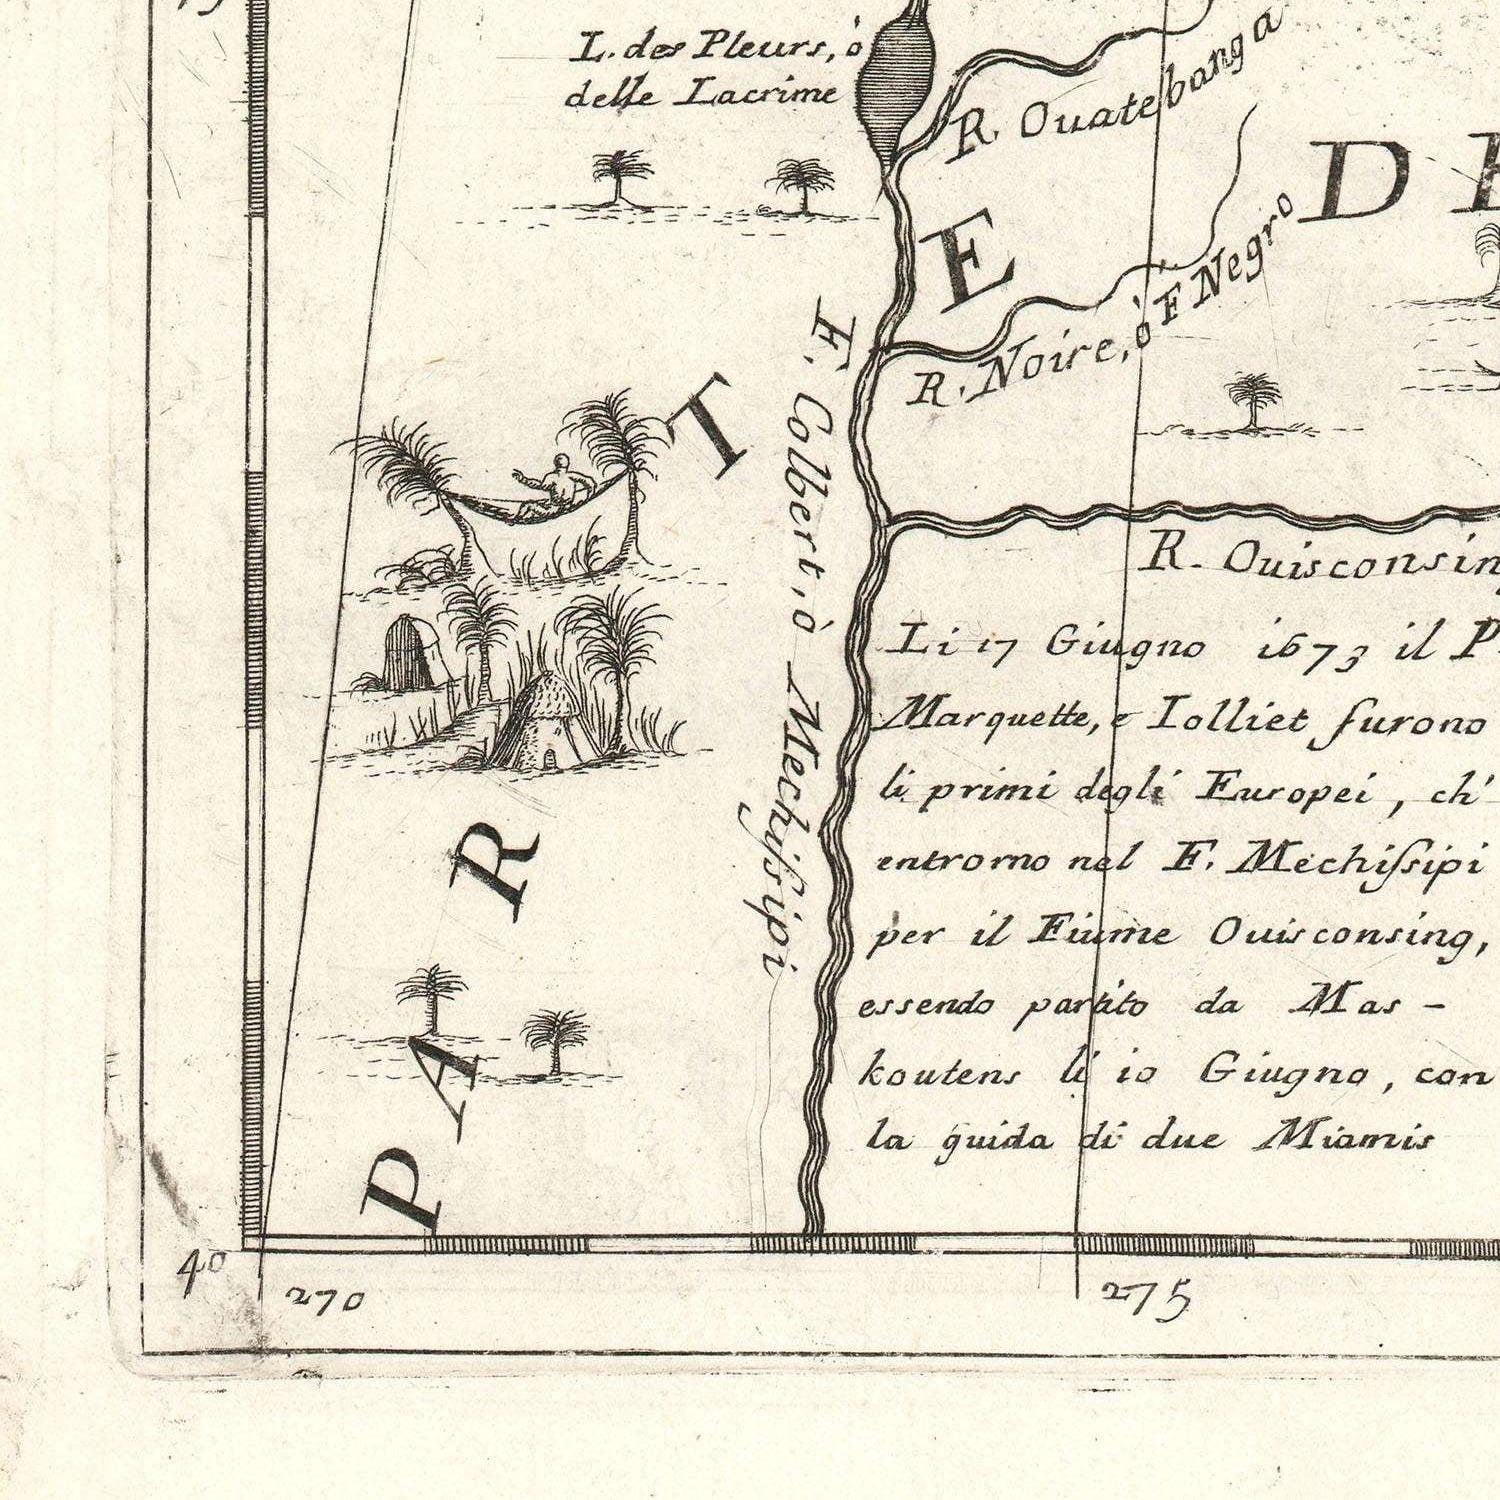 L. des Pleurs, ò
delle Lacrime
R. Ouatebanga
R. Noire, ò F Negro
D
F. Colbert, ò Mechiſsipi
P A R T E
R. Ouisconsing
Li 17 Giugno 1673 il P.
Marquette, e Iolliet furono
li primi degli Europei, ch'
entrorno nel F. Mechiſsipi
per il Fiume Ouisconsing,
essendo partito da Mas-
koutens li 10 Giugno, con
la guida di due Miamis
40
270
275